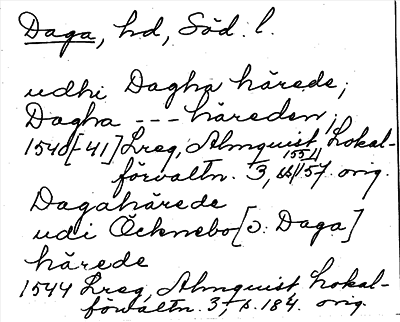 Daga, hd, Söd. l.
udhi Dagha härede,
Dagha --- häreden,
1540[-41] Lreg, Almquist, Lokal-
förvaltn. 3, 157. orig.
Dagahärede
udi Öcknebo [ɔ: Daga]
härede
1544 Lreg, Almquist, Lokal-
förvaltn. 3, s. 184. orig.